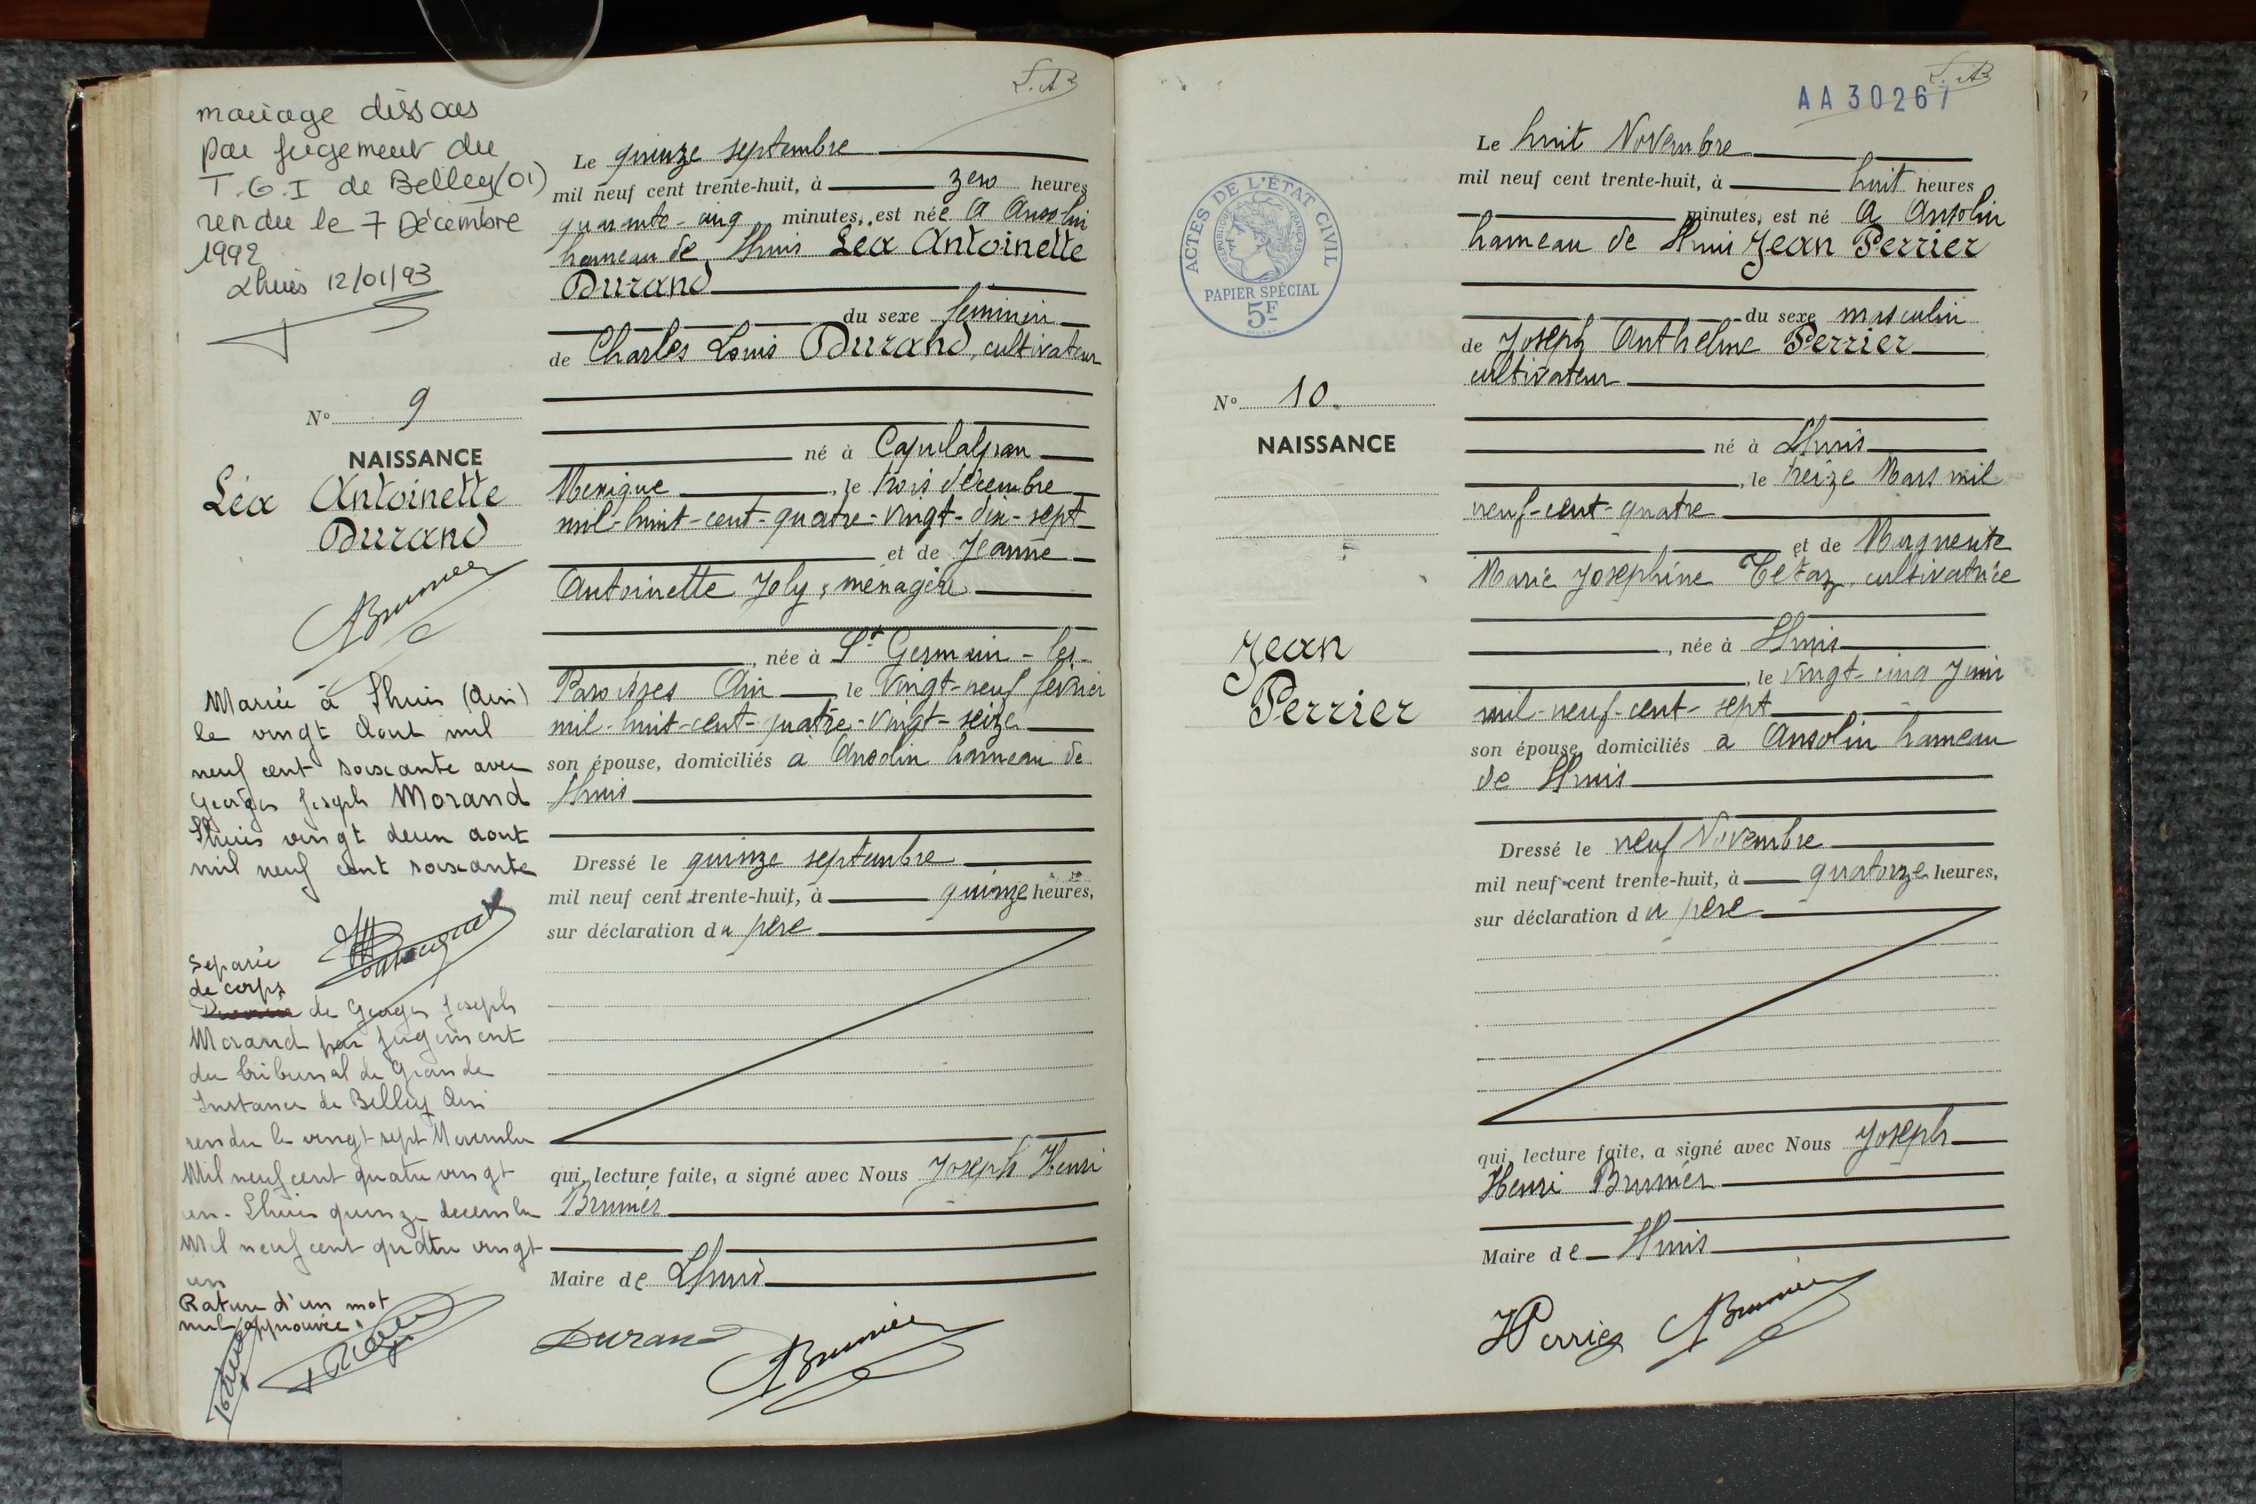 mariage dissous
par jugement du
T.G.I de Belley (01)
rendu le 7 Décembre
1992
Lhuis 12/01/93
N° 9
NAISSANCE
Léa Antoinette
Durand
Brunier
Mariée à Lhuis (Ain)
le vingt Aout mil
neuf cent soixante avec
Georges Joseph Morand
Lhuis vingt deux aout
mil neuf cent soixante
Séparée
de corps
de Georges Joseph
Morand par jugement
du tribunal de Grande
Instance de Belley Ain
rendu le vingt sept Novembre
Mil neuf cent quatre vingt
un - Lhuis quinze decembre
Mil neuf cent quatre vingt
un
Rature d'un mot
nul approuvée.
Le quinze septembre
mil neuf cent trente-huit, à zero heures
quarante-cinq minutes, est née à Ansolin
hameau de Lhuis Léa Antoinette
Durand
du sexe féminin
de Charles Louis Durand, cultivateur
né à Capulalpan
Mexique, le trois décembre
mil-huit-cent-quatre-vingt-dix-sept
et de Jeanne
Antoinette Joly, ménagère
, née à St Germain-les-
Paroisses Ain, le vingt-neuf février
mil-huit-cent-quatre-vingt-seize
son épouse, domiciliés à Ansolin hameau de
Lhuis
Dressé le quinze septembre
mil neuf cent trente-huit, à quinze heures,
sur déclaration du père
qui, lecture faite, a signé avec Nous Joseph Henri
Brunier
Maire de Lhuis
Durand
Brunier
AA 30267
ACTES DE L'ÉTAT CIVIL
RÉPUBLIQUE FRANÇAISE
PAPIER SPÉCIAL
5F
N° 10.
NAISSANCE
Jean
Perrier
Le huit Novembre
mil neuf cent trente-huit, à huit heures
minutes, est né à Ansolin
hameau de Lhuis Jean Perrier
du sexe masculin
de Joseph Anthelme Perrier
cultivateur
né à Lhuis
, le treize Mars mil
neuf-cent-quatre
et de Marguerite
Marie Joséphine Tétaz, cultivatrice
, née à Lhuis
, le vingt-cinq Juin
mil-neuf-cent-sept
son épouse, domiciliés à Ansolin hameau
de Lhuis
Dressé le neuf Novembre
mil neuf cent trente-huit, à quatorze heures,
sur déclaration du père
qui, lecture faite, a signé avec Nous Joseph
Henri Brunier
Maire de Lhuis
JPerrier
Brunier